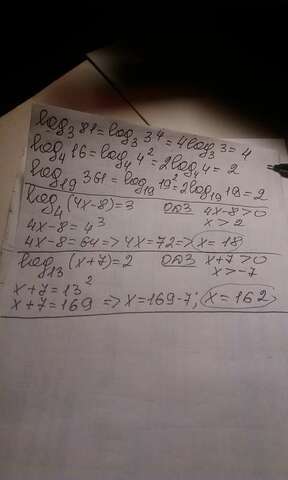 log₃81=log₃3⁴=4log₃3=4
log₄16=log₄4²=2log₄4=2
log₁₉361=log₁₉19²=2log₁₉19=2
log₄(4x-8)=3 ОДЗ 4x-8>0
4x-8=4³ x>2
4x-8=64=>4x=72=>x=18
log₁₃(x+7)=2 ОДЗ x+7>0
x+7=13² x>-7
x+7=169 =>x=169-7; x=162